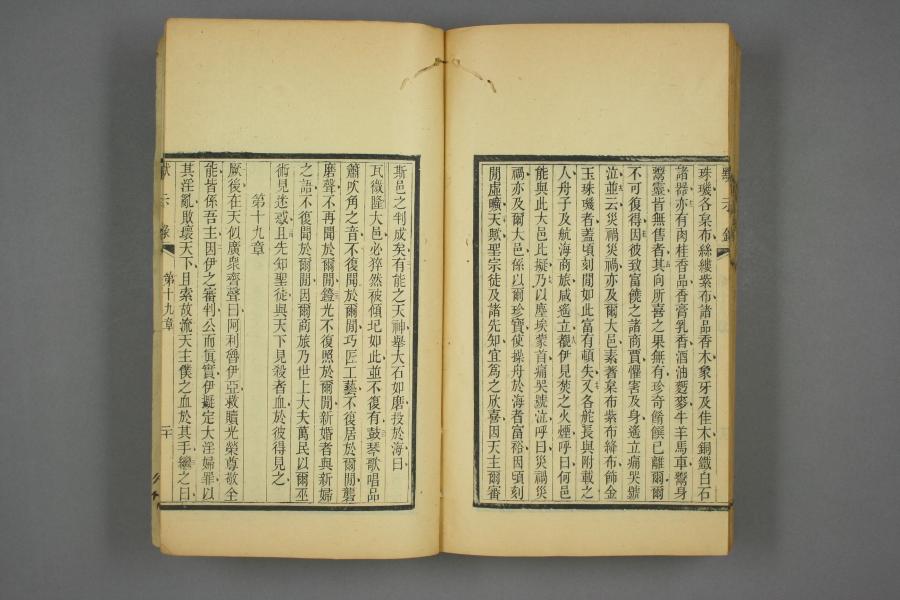 珠璣各枲布絲縷紫布諸品香木象牙及佳木銅鐵白石
諸器亦有肉桂香品香膏乳香酒油麪麥牛羊馬車鬻身
鬻靈皆無售者其向所喜之果無有珍奇餚饌已離爾爾
不可復得因彼致富饒之諸商賈懼害及身遙立痛哭號
泣並云災禍災禍亦及爾大邑素著枲布紫布絳布飾金
玉珠璣者蓋頃刻閒如此富有頓失又各舵長與附載之
人舟子及航海商旅咸遙立觀伊見焚之火煙呼曰何邑
能與此大邑比擬乃以塵埃蒙首痛哭號泣呼曰災禍災
禍亦及爾大邑係以爾珍寶使操舟於海者富裕因頃刻
閒虛曠天與聖宗徒及諸先知宜為之欣喜因天主爾審
斯邑之判成矣有能之天神舉大石如磨投於海曰
瓦微隆大邑必猝然被傾圮如此並不復有鼓琴歌唱品
簫吹角之音不復聞於爾閒巧匠工藝不復居於爾閒礱
磨聲不再聞於爾閒鐙光不復照於爾閒新婚者與新婦
之語不復聞於爾閒因爾商旅乃世上大夫萬民以爾巫
術見迷惑且先知聖徒與天下見殺者血於彼得見之
第十九章
厥後在天似廣衆齊聲曰阿利魯伊亞救贖光榮尊敬全
能皆係吾主因伊之審判公而眞實伊擬定大淫婦罪以
其淫亂敗壞天下且索故流天主僕之血於其手繼之曰
默示錄
第十九章
二十